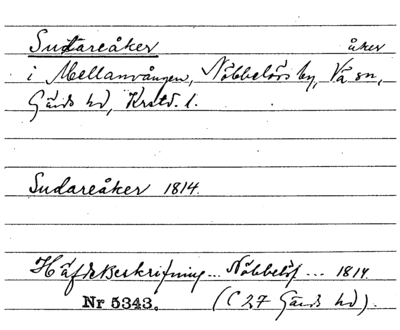 Sudareåker åker
i Mellanvången, Nöbbelövs by, Vä sn,
Gärds hd, Krstd. l.
Sudareåker 1814.
Häfdebeskrifning... Nöbbelöf ... 1814.
Nr 5343. (C 27 Gärds hd).